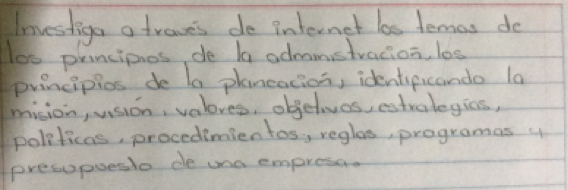 Investiga a través de internet los temas de
los principios de la administración, los
principios de la planeación, identificando la
misión, visión, valores, objetivos, estrategias,
políticas, procedimientos, reglas, programas y
presupuesto de una empresa.